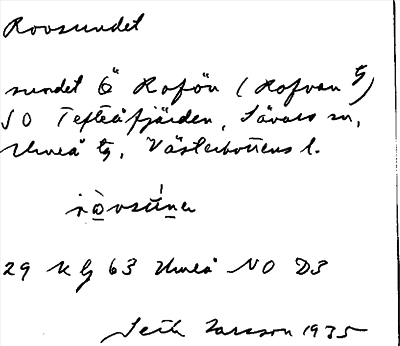 Rovsundet
sundet Ö Rofön (Rofvan ɔ)
SO Tefteåfjärden, Sävars sn,
Umeå tg, Västerbottens l.
ròvsúnɐ
29 K lj 63 Umeå NO D3
Seth Larsson 1935